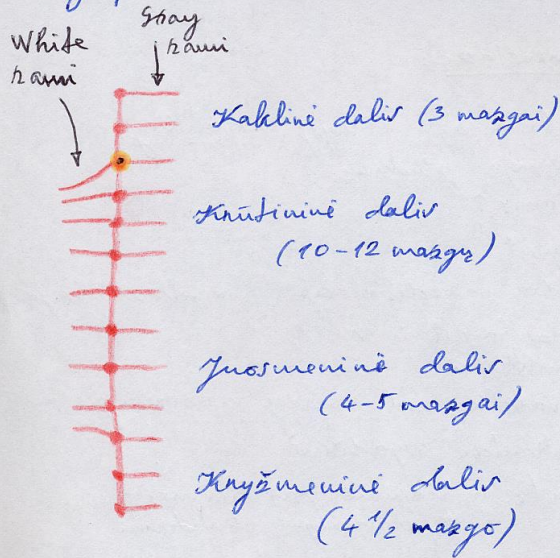 White
rami
Gray
rami
Kaklinė dalis (3 mazgai)
Krūtininė dalis
(10-12 mazgų)
Juosmeninė dalis
(4-5 mazgai)
Kryžmeninė dalis
(4 1/2 mazgo)